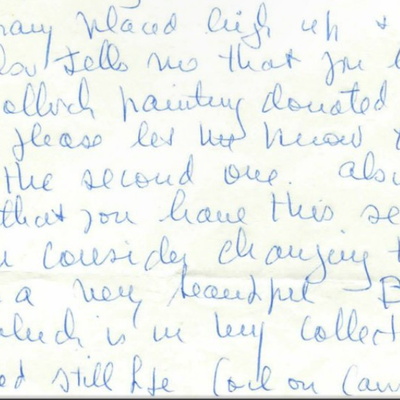 many placed high up &
also tells me that you h
ollock painting donated
please let me know
the second one. also
that you have this se
consider changing t
a very beautiful B
which is in my collect
ed still life (oil on Can